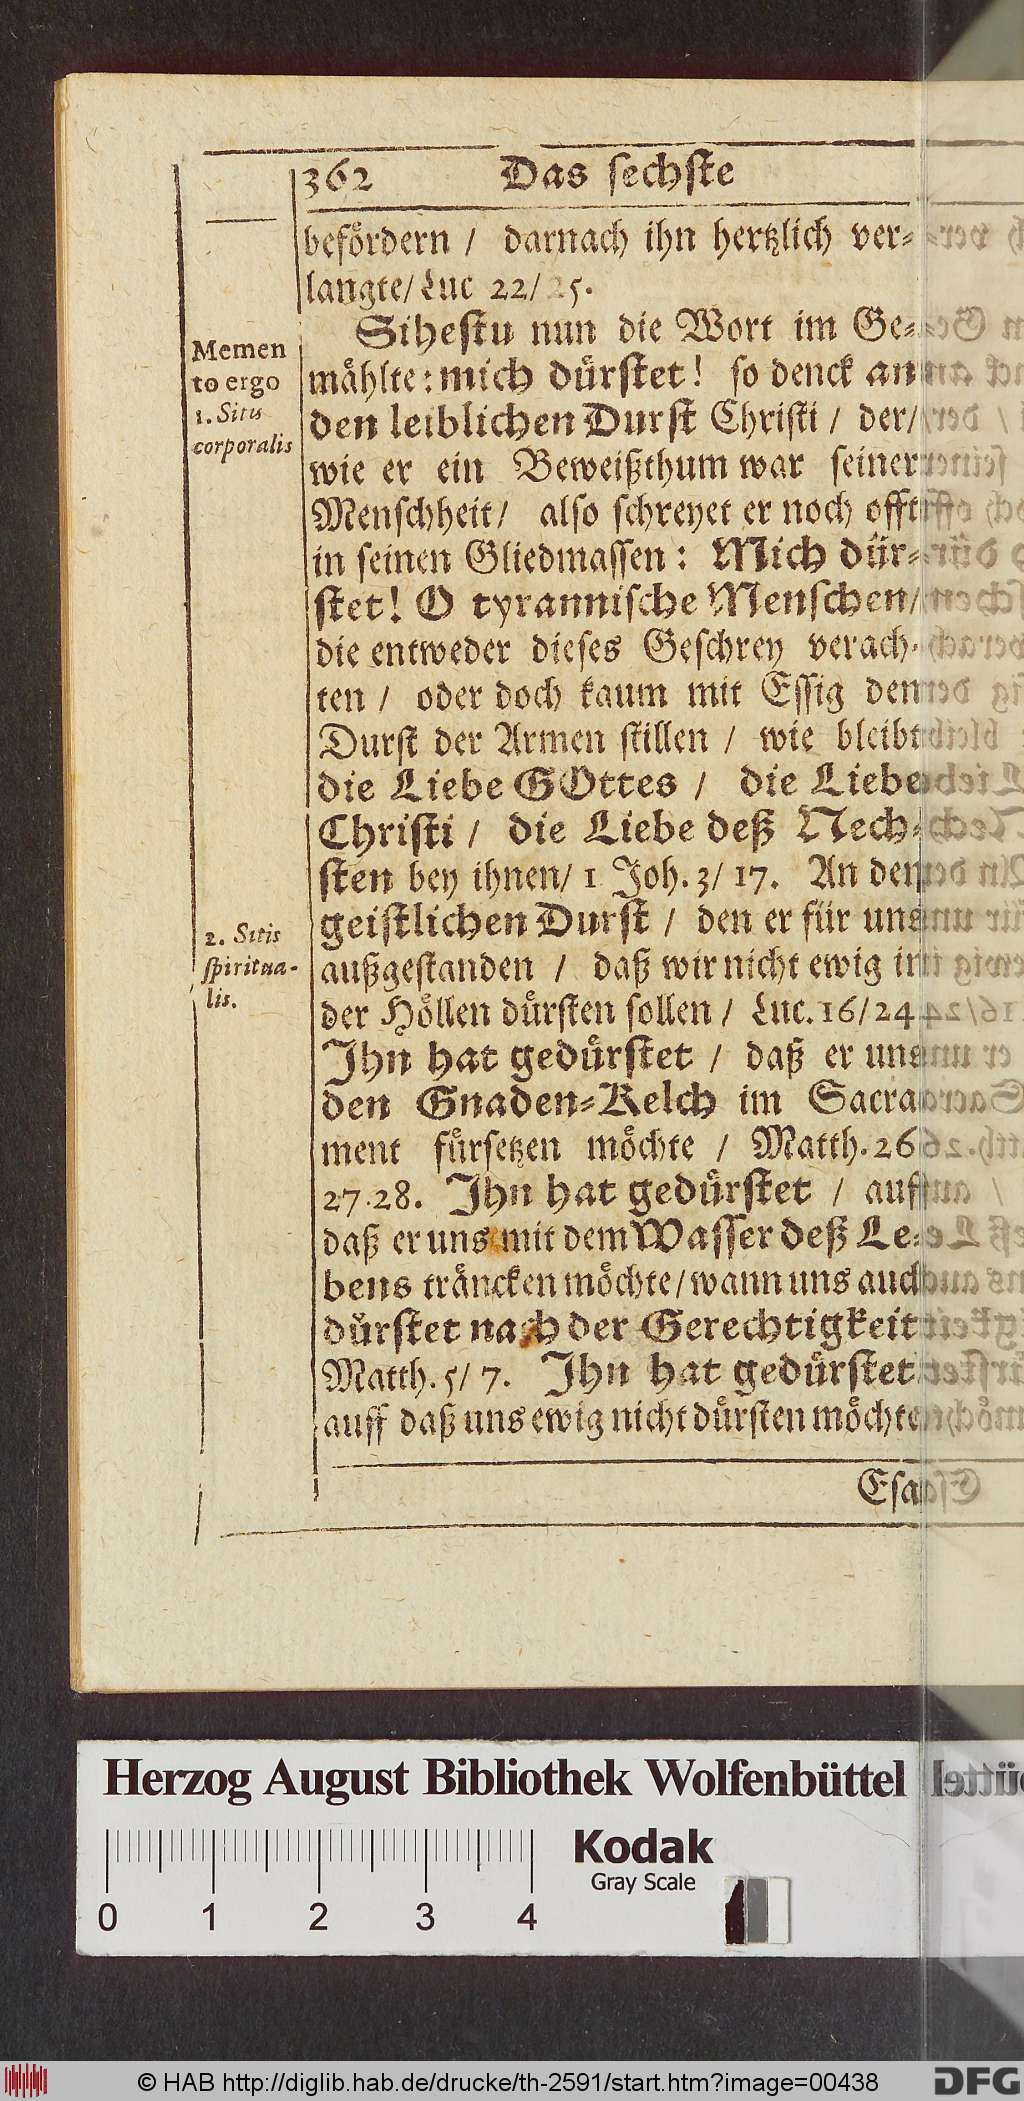 362 Das sechste
befördern / darnach ihn hertzlich ver-
langte / Luc 22/ 15.
Sihestu nun die Wort im Ge-
mählte: mich dürstet! so denck an
den leiblichen Durst Christi / der/
wie er ein Beweißthum war seiner
Menschheit / also schreyet er noch offt
in seinen Gliedmassen: Mich dür-
stet! O tyrannische Menschen/
die entweder dieses Geschrey verach-
ten / oder doch kaum mit Essig den
Durst der Armen stillen / wie bleibt
die Liebe GOttes / die Liebe
Christi / die Liebe deß Nech-
sten bey ihnen/ 1 Joh. 3/ 17. An den
geistlichen Durst / den er für uns
außgestanden / daß wir nicht ewig in
der Höllen dürsten sollen / Luc. 16/24
Ihn hat gedürstet / daß er uns
den Gnaden-Kelch im Sacra
ment fürsetzen möchte / Matth. 26
27.28. Ihn hat gedürstet / auff
daß er uns mit dem Wasser deß Le-
bens träncken möchte / wann uns auch
dürstet nach der Gerechtigkeit
Matth. 5/ 7. Ihn hat gedürstet
auff daß uns ewig nicht dürsten möchte
Esa
Memen
to ergo
1. Sitis
corporalis
2. Sitis
spiritua-
lis.
Herzog August Bibliothek Wolfenbüttel
Kodak
Gray Scale
0 1 2 3 4
© HAB http://diglib.hab.de/drucke/th-2591/start.htm?image=00438
DFG